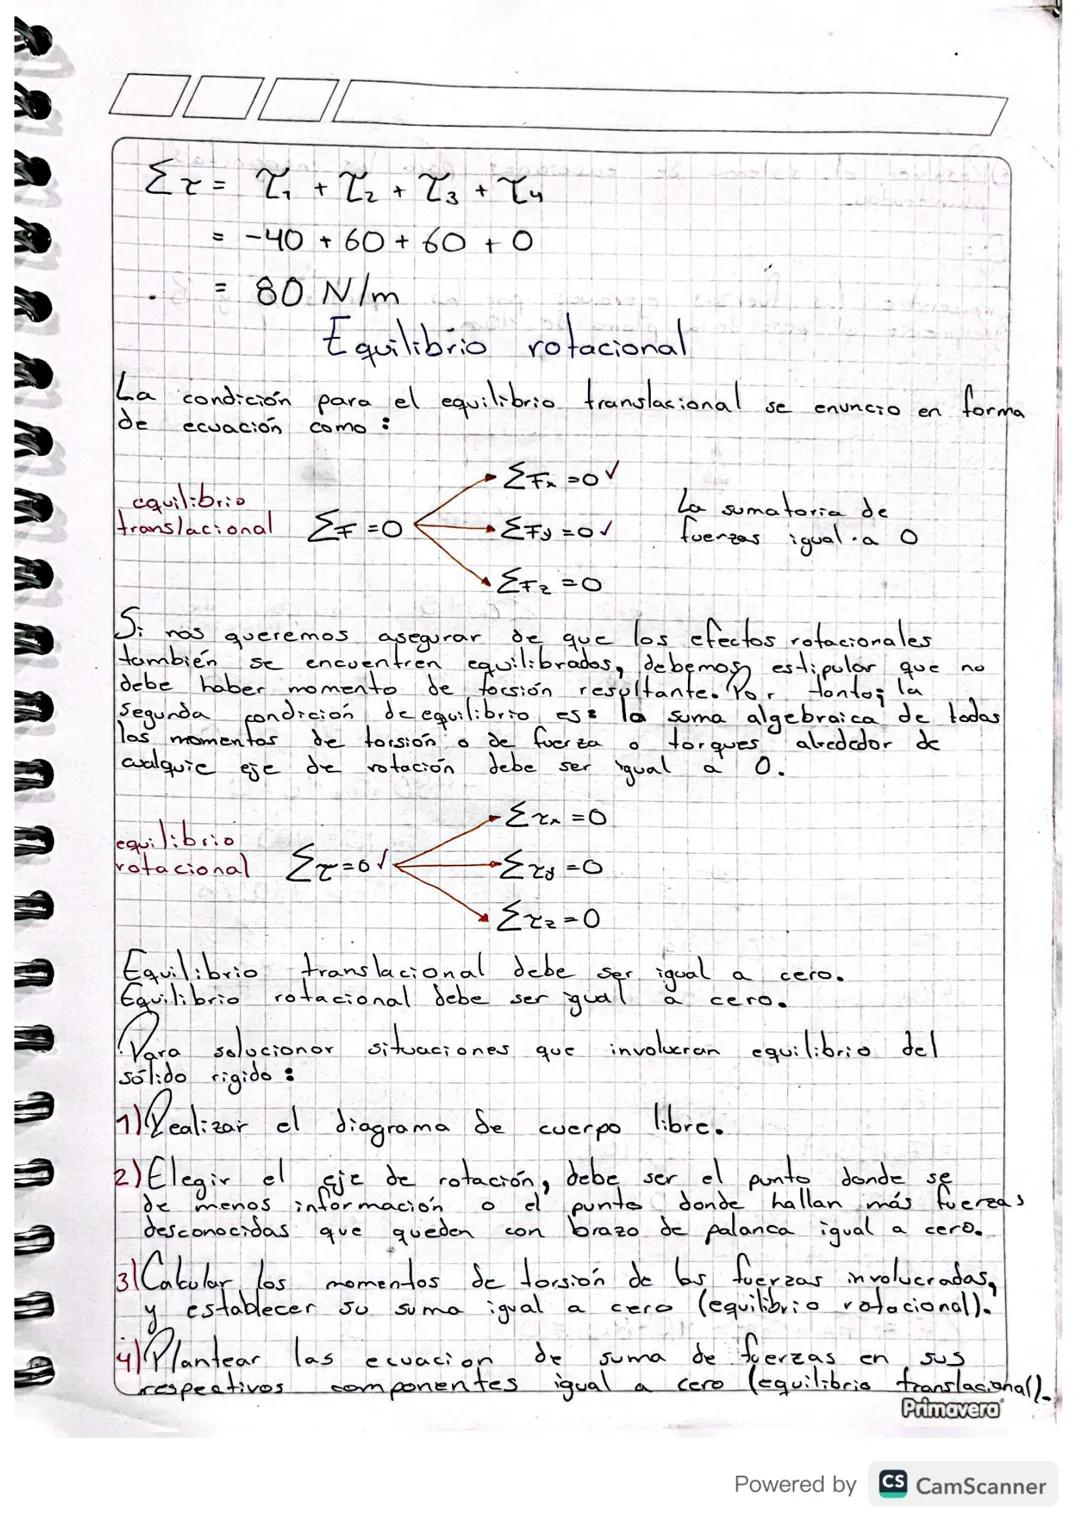 Στ = τ₁ + τ₂ + τ₃ + τ₄
= -40 + 60 + 60 + 0
= 80 N/m
Equilibrio rotacional
La condición para el equilibrio translacional se enuncio en forma
de ecuación como :
equilibrio
translacional ΣF = 0
ΣFx = 0 ✓
ΣFy = 0 ✓
ΣFz = 0
La sumatoria de
fuerzas igual a 0
Si nos queremos asegurar de que los efectos rotacionales
también se encuentren equilibrados, debemos estipular que no
debe haber momento de torsión resultante. Por tanto; la
segunda condición de equilibrio es: la suma algebraica de todas
los momentos de torsión o de fuerza o torques alrededor de
cualquie eje de rotación debe ser igual a 0.
equilibrio
rotacional Στ = 0 ✓
Στx = 0
Στy = 0
Στz = 0
Equilibrio translacional debe ser igual a cero.
Equilibrio rotacional debe ser igual a cero.
Para solucionar situaciones que involucran equilibrio del
sólido rigido :
1) Realizar el diagrama de cuerpo libre.
2) Elegir el eje de rotación, debe ser el punto donde se
de menos información o el punto donde hallan más fuerzas
desconocidas que queden con brazo de palanca igual a cero.
3) Calcular los momentos de torsión de las fuerzas involucradas,
y establecer su suma igual a cero (equilibrio rotacional).
4) Plantear las ecuacion de suma de fuerzas en sus
respectivos componentes igual a cero (equilibrio translacional).
Primavera
Powered by CS CamScanner